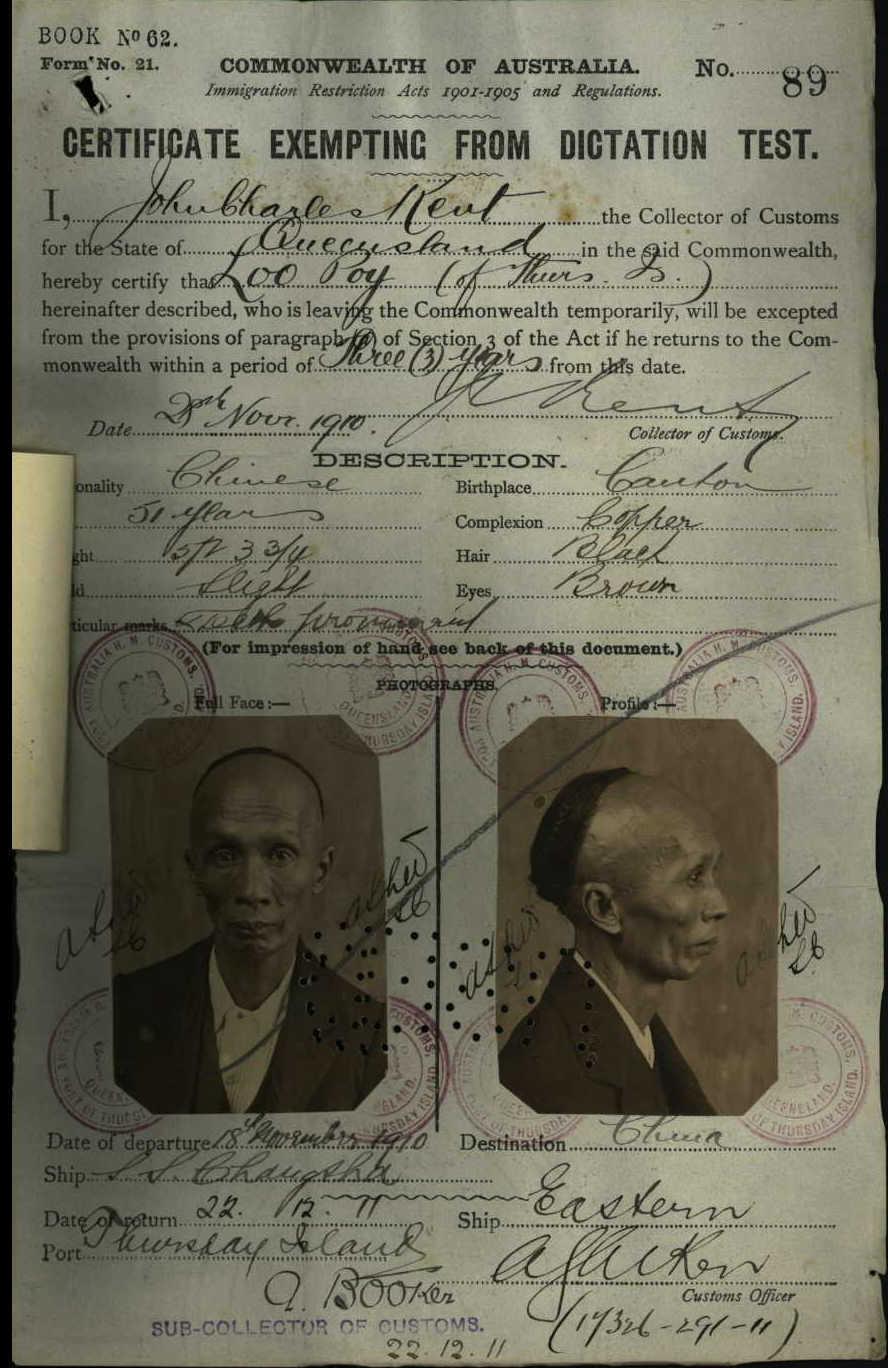 BOOK No 62.
Form No. 21.
COMMONWEALTH OF AUSTRALIA.
No. 89
Immigration Restriction Acts 1901-1905 and Regulations.
CERTIFICATE EXEMPTING FROM DICTATION TEST.
I, John Charles Kent the Collector of Customs
for the State of Queensland in the said Commonwealth,
hereby certify that Loo Poy (of Thurs. I.)
hereinafter described, who is leaving the Commonwealth temporarily, will be excepted
from the provisions of paragraph (a) of Section 3 of the Act if he returns to the Com-
monwealth within a period of Three (3) years from this date.
Kent
Date Novr. 1910.
Collector of Customs.
DESCRIPTION.
onality Chinese
Birthplace Canton
51 years
Complexion Copper
ght 5ft 3 3/4
Hair Black
ld Slight
Eyes Brown
ticular marks Teeth prominent
(For impression of hand see back of this document.)
PHOTOGRAPHS.
Full Face:—
Profile:—
AUSTRALIA H. M. CUSTOMS.
QUEENSLAND
PORT OF THURSDAY ISLAND.
Date of departure 18th November 1910
Destination China
Ship S.S. Changsha
Date of return 22. 12. 11
Ship Eastern
Port Thursday Island
A. Booker
Customs Officer
SUB-COLLECTOR OF CUSTOMS.
22. 12. 11
(17326-291-11)